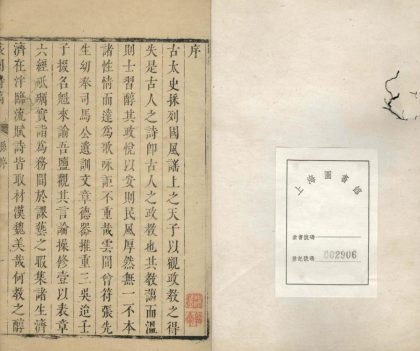 序
古太史採列國風謠上之天子以觀政教之得
失是古人之詩卽古人之政教也其教讓而溫
則士習醇其政悅以安則民風厚然無一不本
諸性情而達爲歌咏詎不重哉雲間曾符張先
生幼奉司馬公遺訓文章德器推重三吳迨壬
子掇名魁來諭吾鹽觀其言論操修壹以表章
六經砥礪實爲務間於課藝之暇集諸生濟
濟在泮臨流賦詩皆取材漢魏美哉何教之醇
上海圖書館
索書號碼
登記號碼 002906